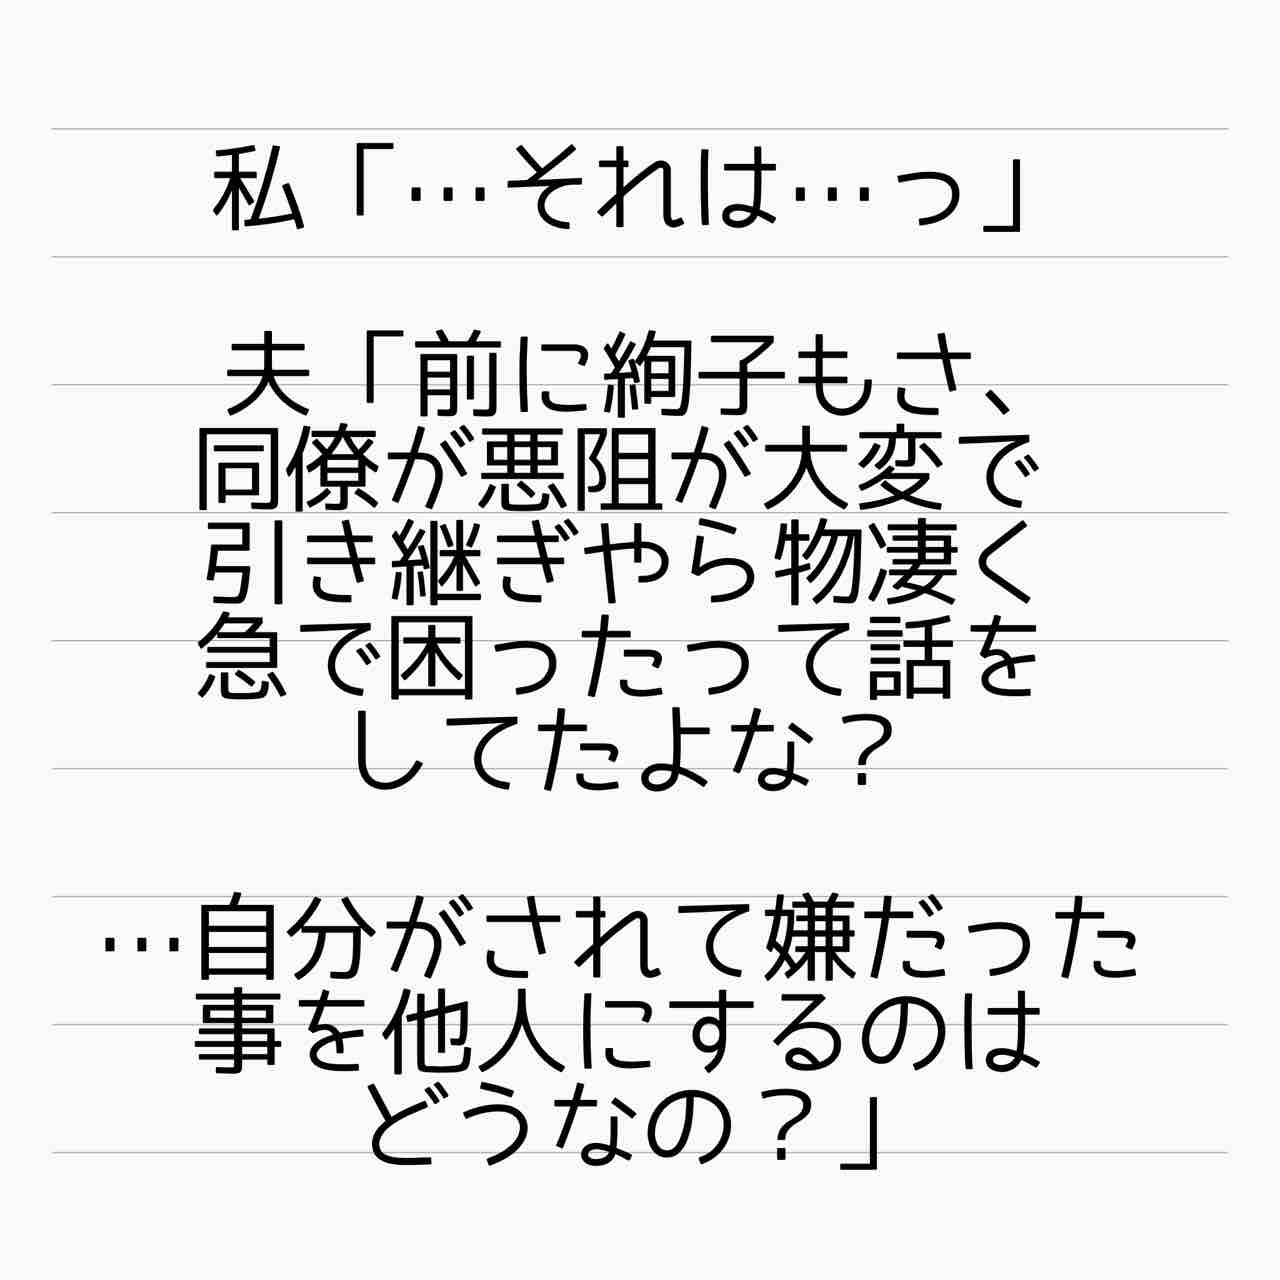 私「…それは…っ」
夫「前に絢子もさ、
同僚が悪阻が大変で
引き継ぎやら物凄く
急で困ったって話を
してたよな？
…自分がされて嫌だった
事を他人にするのは
どうなの？」